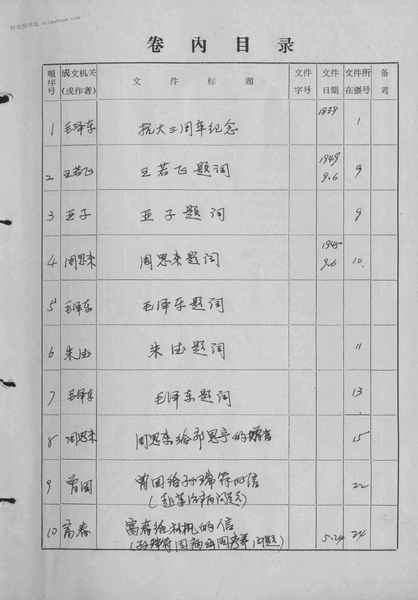 卷内目录
顺序号 成文机关(或作者) 文件标题 文件字号 文件日期 文件所在张号 备考
1 毛泽东 抗大三周年纪念 1939 1
2 王若飞 王若飞题词 1949 9.6 9
3 亚子 亚子题词 9
4 周恩来 周恩来题词 1945 9.6 10
5 毛泽东 毛泽东题词
6 朱德 朱德题词 11
7 毛泽东 毛泽东题词 13
8 周恩来 周恩来给 的 15
9 曾国 曾国给孙瑞符的信 22
10 富春 富春给 的信 5.24 24